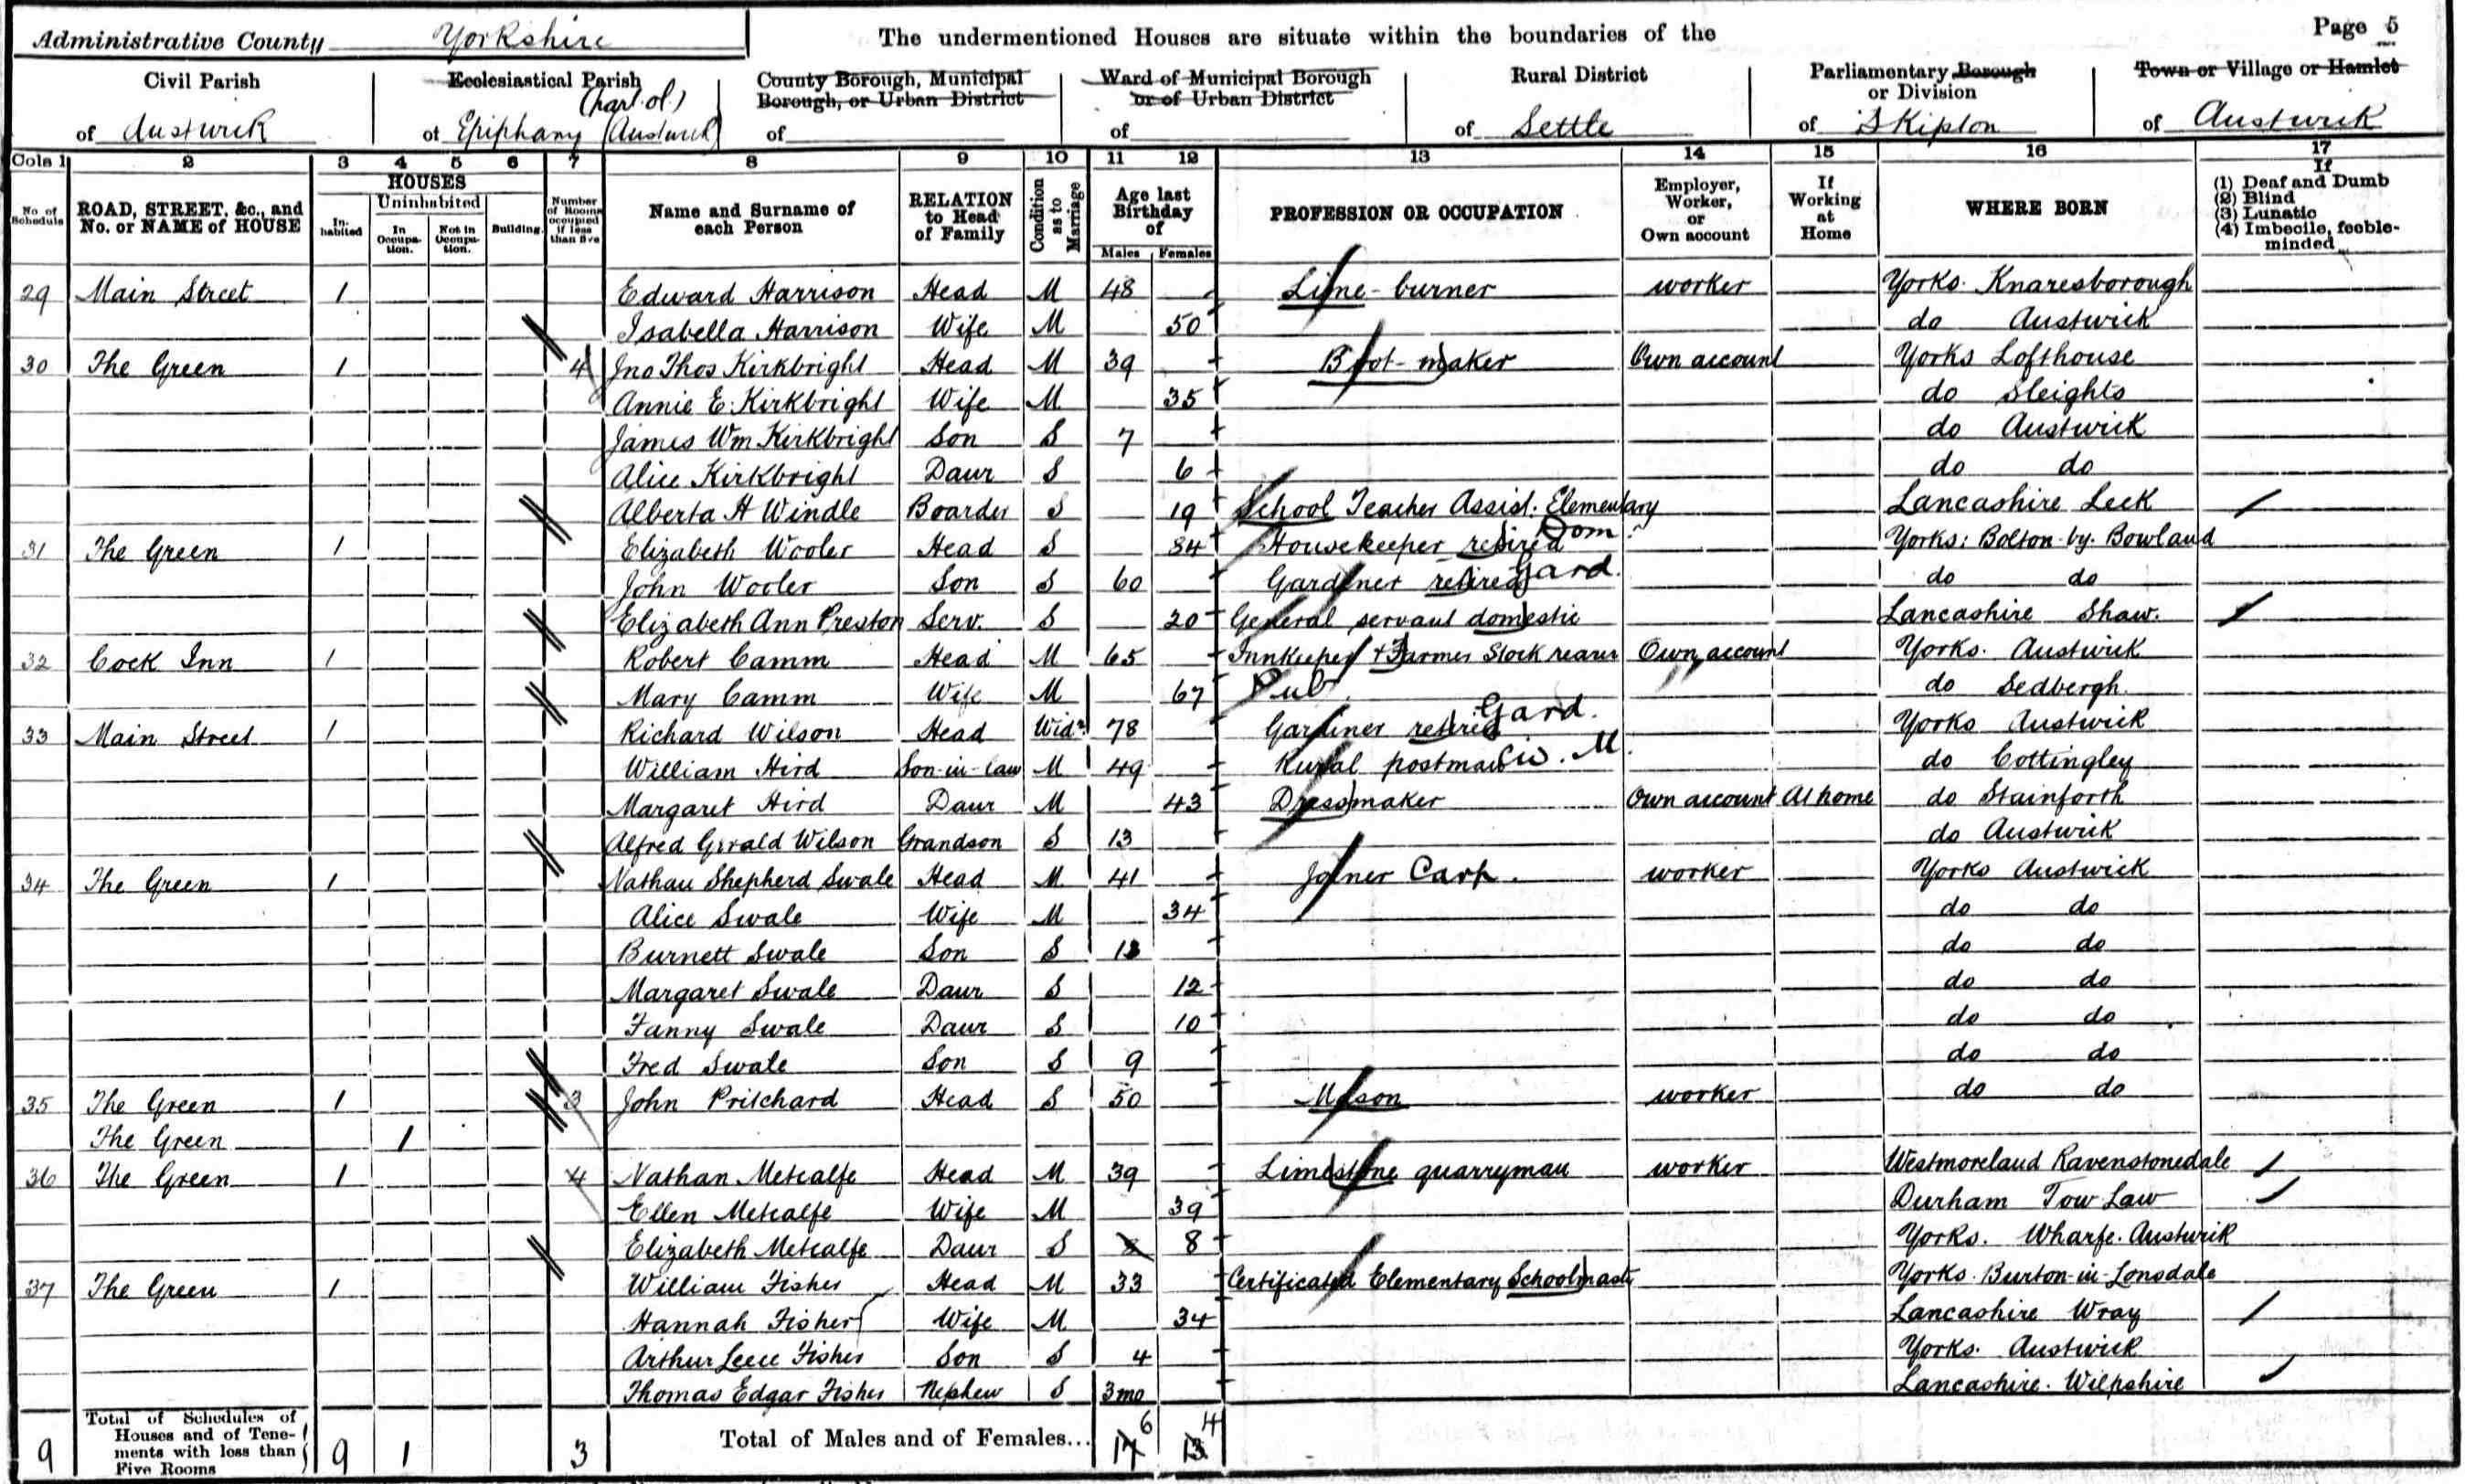 Administrative County Yorkshire The undermentioned Houses are situate within the boundaries of the Page 5
Civil Parish Ecclesiastical Parish County Borough, Municipal Borough, or Urban District Ward of Municipal Borough or of Urban District Rural District Parliamentary Borough or Division Town or Village or Hamlet
of Austwick of Epiphany (part of) (Austwick) of of of Settle of Skipton of Austwick
Cols 1 2 3 4 5 6 7 8 9 10 11 12 13 14 15 16 17
No of Schedule ROAD, STREET, &c., and No. or NAME of HOUSE HOUSES Inhabited Uninhabited In Occupation. Not in Occupation. Building. Number of Rooms occupied if less than five Name and Surname of each Person RELATION to Head of Family Condition as to Marriage Age last Birthday of Males Females PROFESSION OR OCCUPATION Employer, Worker, or Own account If Working at Home WHERE BORN If (1) Deaf and Dumb (2) Blind (3) Lunatic (4) Imbecile, feeble-minded
29 Main Street 1 Edward Harrison Head M 48 Lime-burner worker Yorks. Knaresborough
Isabella Harrison Wife M 50 do Austwick
30 The Green 1 4 Jno Thos Kirkbright Head M 39 Boot-maker Own account Yorks Lofthouse
Annie E. Kirkbright Wife M 35 do Sleights
James Wm Kirkbright Son S 7 do Austwick
Alice Kirkbright Daur S 6 do do
Alberta H Windle Boarder S 19 School Teacher Assist. Elementary Lancashire Leck
31 The Green 1 Elizabeth Wooler Head S 84 Housekeeper retired Dom. Yorks: Bolton-by-Bowland
John Wooler Son S 60 Gardener retired Gard. do do
Elizabeth Ann Preston Serv. S 20 General servant domestic Lancashire Shaw.
32 Cock Inn 1 Robert Camm Head M 65 Innkeeper & Farmer Stock rearer Own account Yorks. Austwick
Mary Camm Wife M 67 Pub. do Sedbergh.
33 Main Street 1 Richard Wilson Head Widr 78 Gardiner retired Gard. Yorks Austwick
William Hird Son-in-law M 49 Rural postman Civ. M. do Cottingley
Margaret Hird Daur M 43 Dressmaker Own account At home do Stainforth
Alfred Gerald Wilson Grandson S 13 do Austwick
34 The Green 1 Nathan Shepherd Swale Head M 41 Joiner Carp. worker Yorks Austwick
Alice Swale Wife M 34 do do
Burnett Swale Son S 13 do do
Margaret Swale Daur S 12 do do
Fanny Swale Daur S 10 do do
Fred Swale Son S 9 do do
35 The Green 1 3 John Pritchard Head S 50 Mason worker do do
The Green 1
36 The Green 1 4 Nathan Metcalfe Head M 39 Limestone quarryman worker Westmoreland Ravenstonedale
Ellen Metcalfe Wife M 39 Durham Tow Law
Elizabeth Metcalfe Daur S 8 8 Yorks. Wharfe. Austwick
37 The Green 1 William Fisher Head M 33 Certificated Elementary Schoolmaster Yorks. Burton-in-Lonsdale
Hannah Fisher Wife M 34 Lancashire Wray
Arthur Leece Fisher Son S 4 Yorks. Austwick
Thomas Edgar Fisher Nephew S 3mo Lancashire. Wilpshire
9 Total of Schedules of Houses and of Tenements with less than Five Rooms 9 1 3 Total of Males and of Females... 17 6 13 4